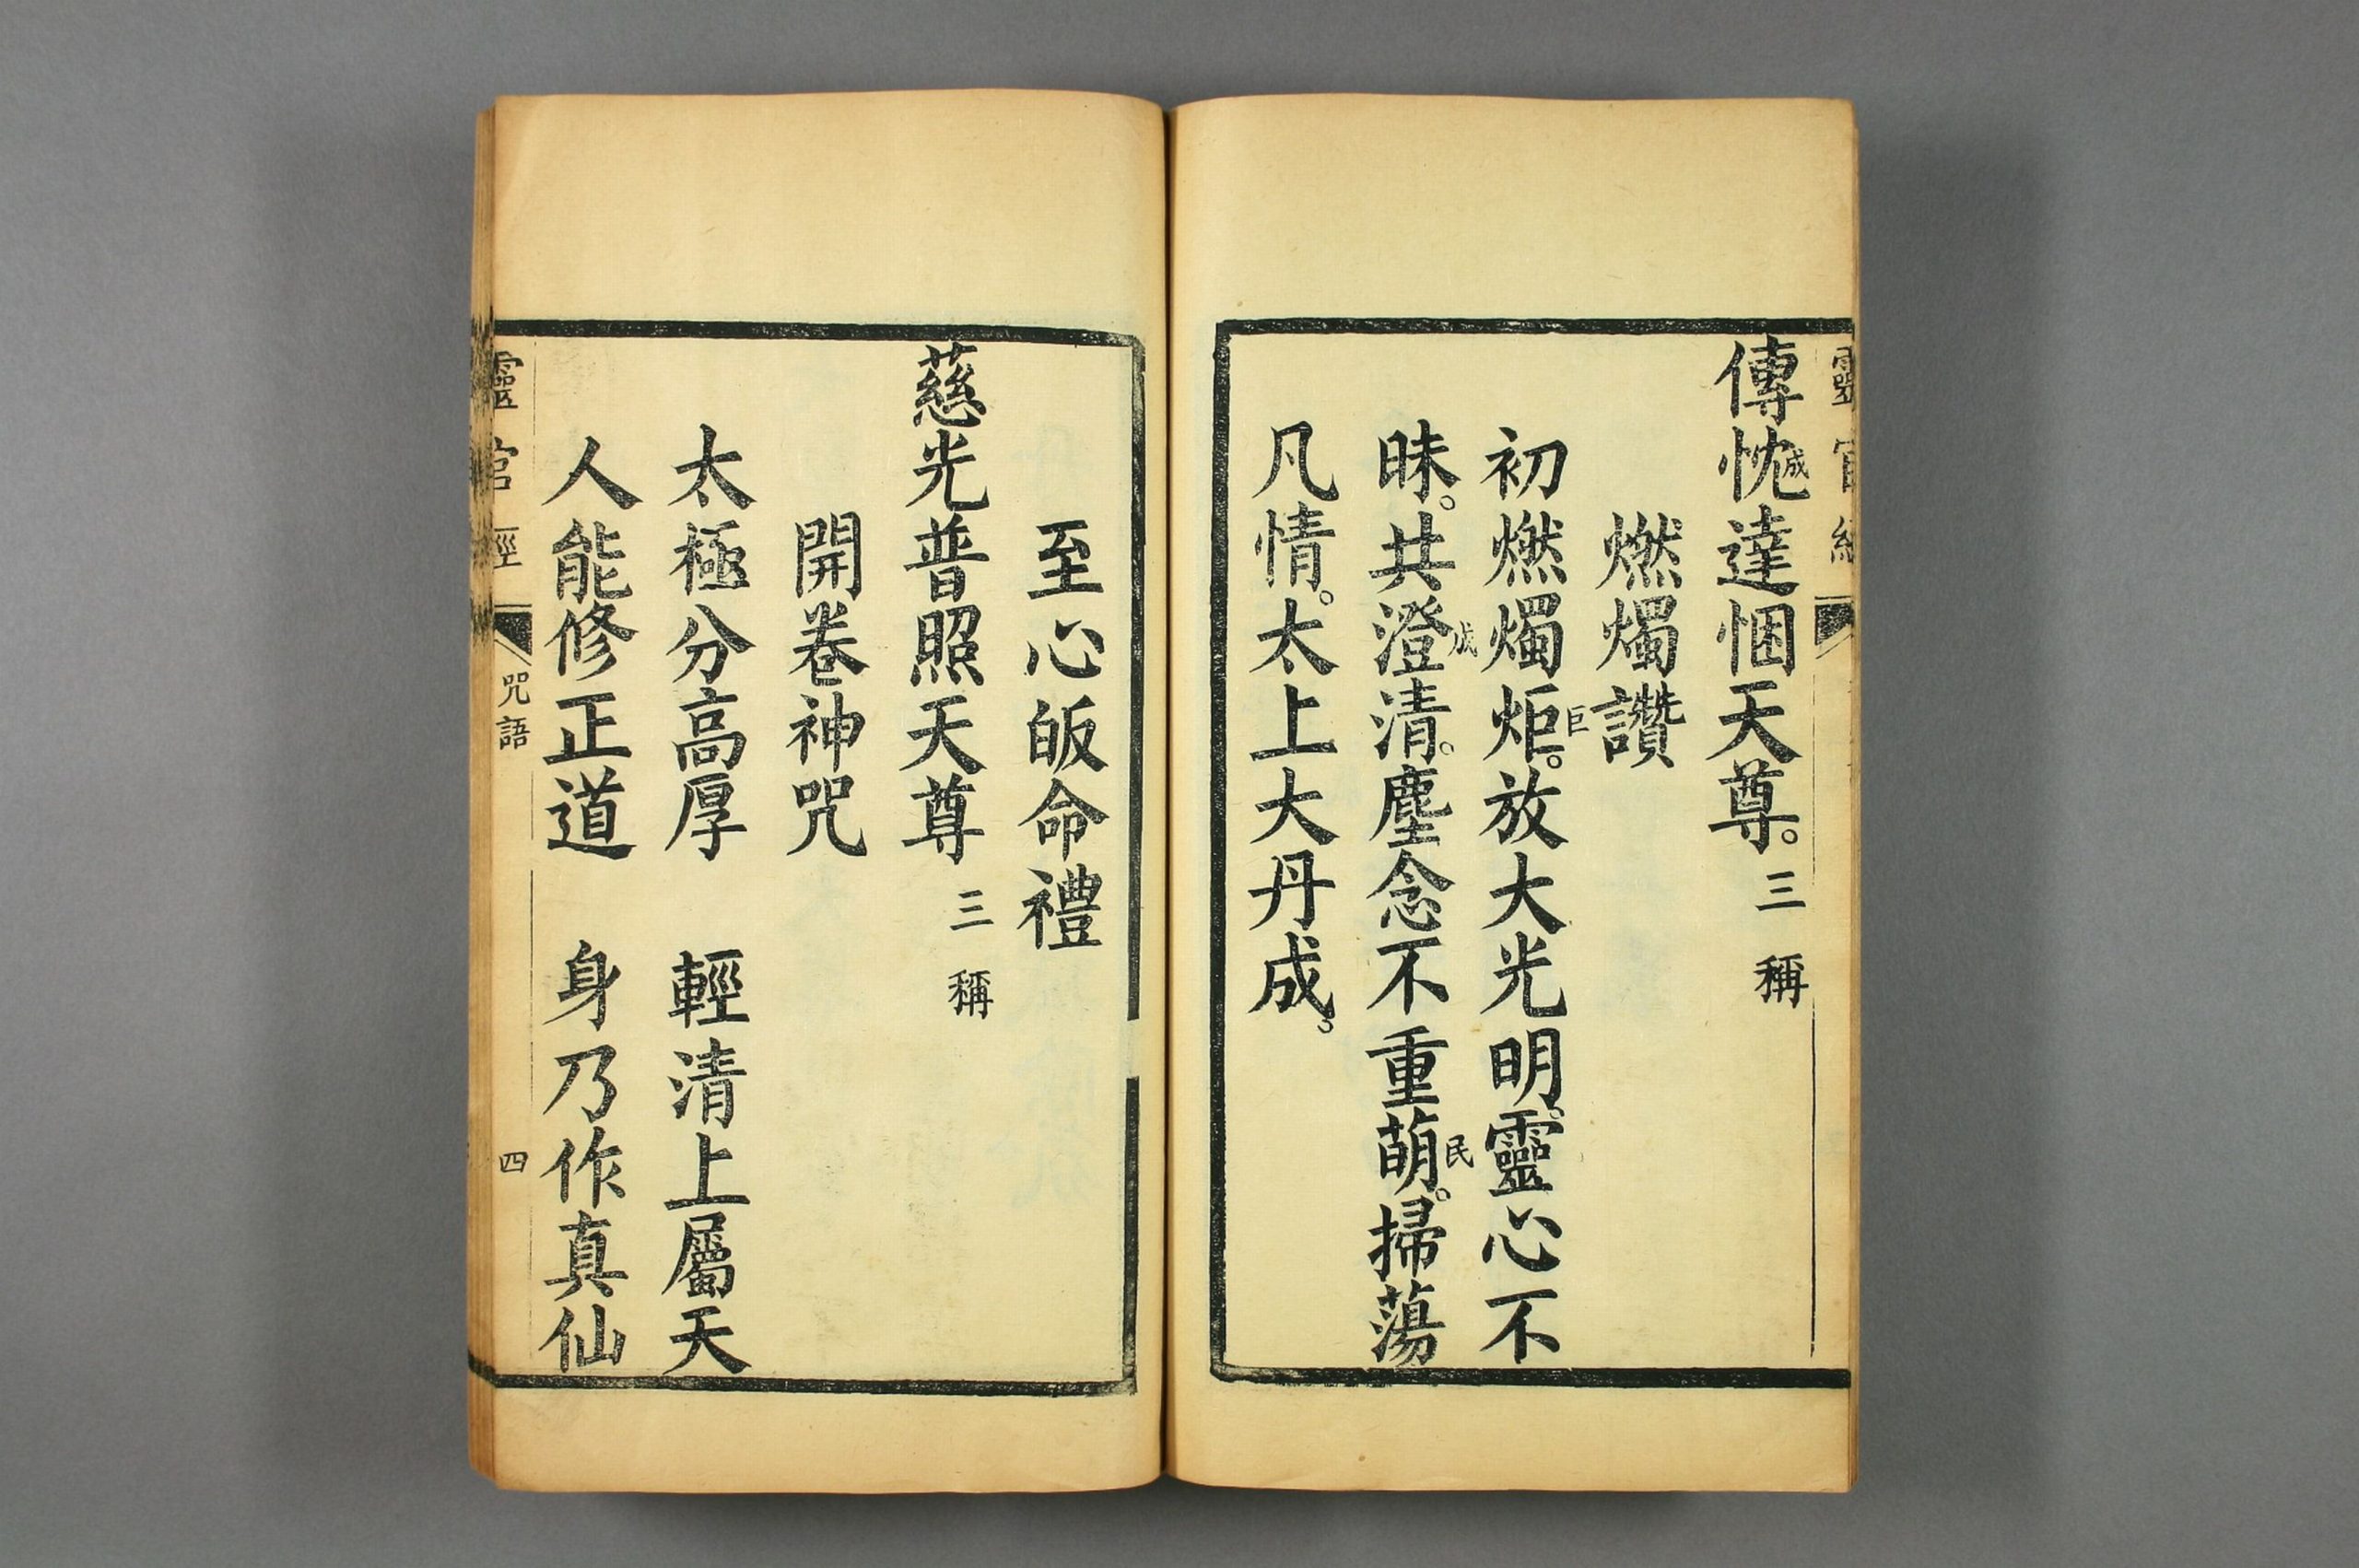 靈官經
傳忱達悃天尊。三稱
誠
燃燭讚
初燃燭炬。放大光明。靈心不
巨
昧。共澄清。塵念不重萌。掃蕩
成
民
凡情。太上大丹成。
至心皈命禮
慈光普照天尊 三稱
開卷神咒
太極分高厚 輕清上屬天
人能修正道 身乃作真仙
靈官經 咒語 四